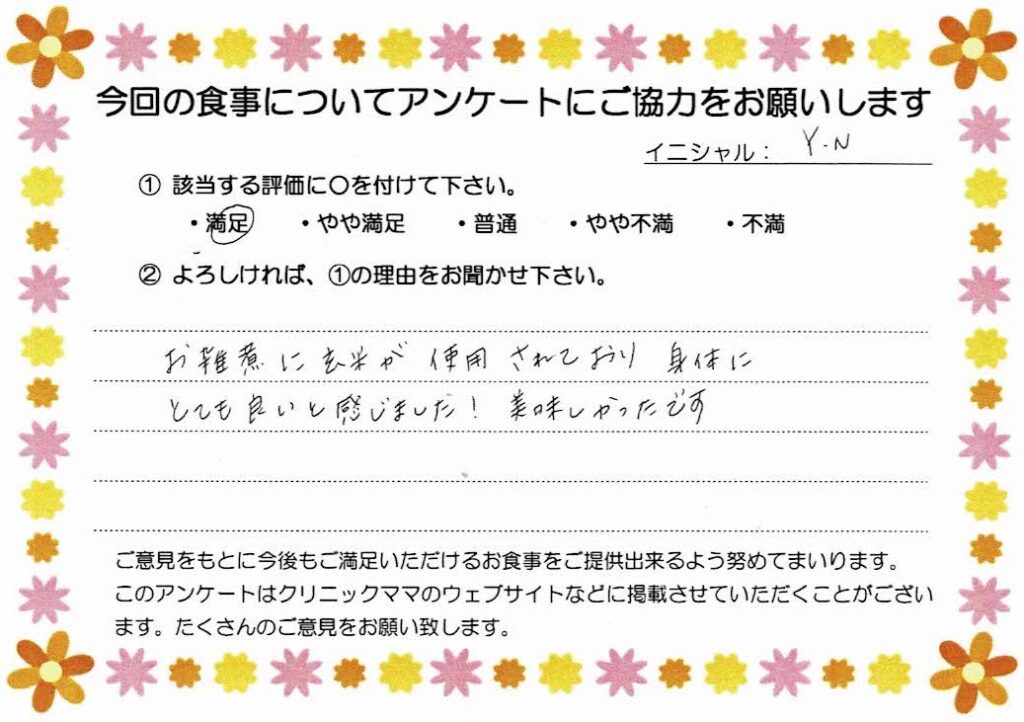 今回の食事についてアンケートにご協力をお願いします
イニシャル： Y.N
① 該当する評価に○を付けて下さい。
・満足 ・やや満足 ・普通 ・やや不満 ・不満
② よろしければ、①の理由をお聞かせ下さい。
お雑煮に玄米が 使用 されており 身体に
とても良いと感じました！ 美味しかったです
ご意見をもとに今後もご満足いただけるお食事をご提供出来るよう努めてまいります。
このアンケートはクリニックママのウェブサイトなどに掲載させていただくことがござい
ます。たくさんのご意見をお願い致します。